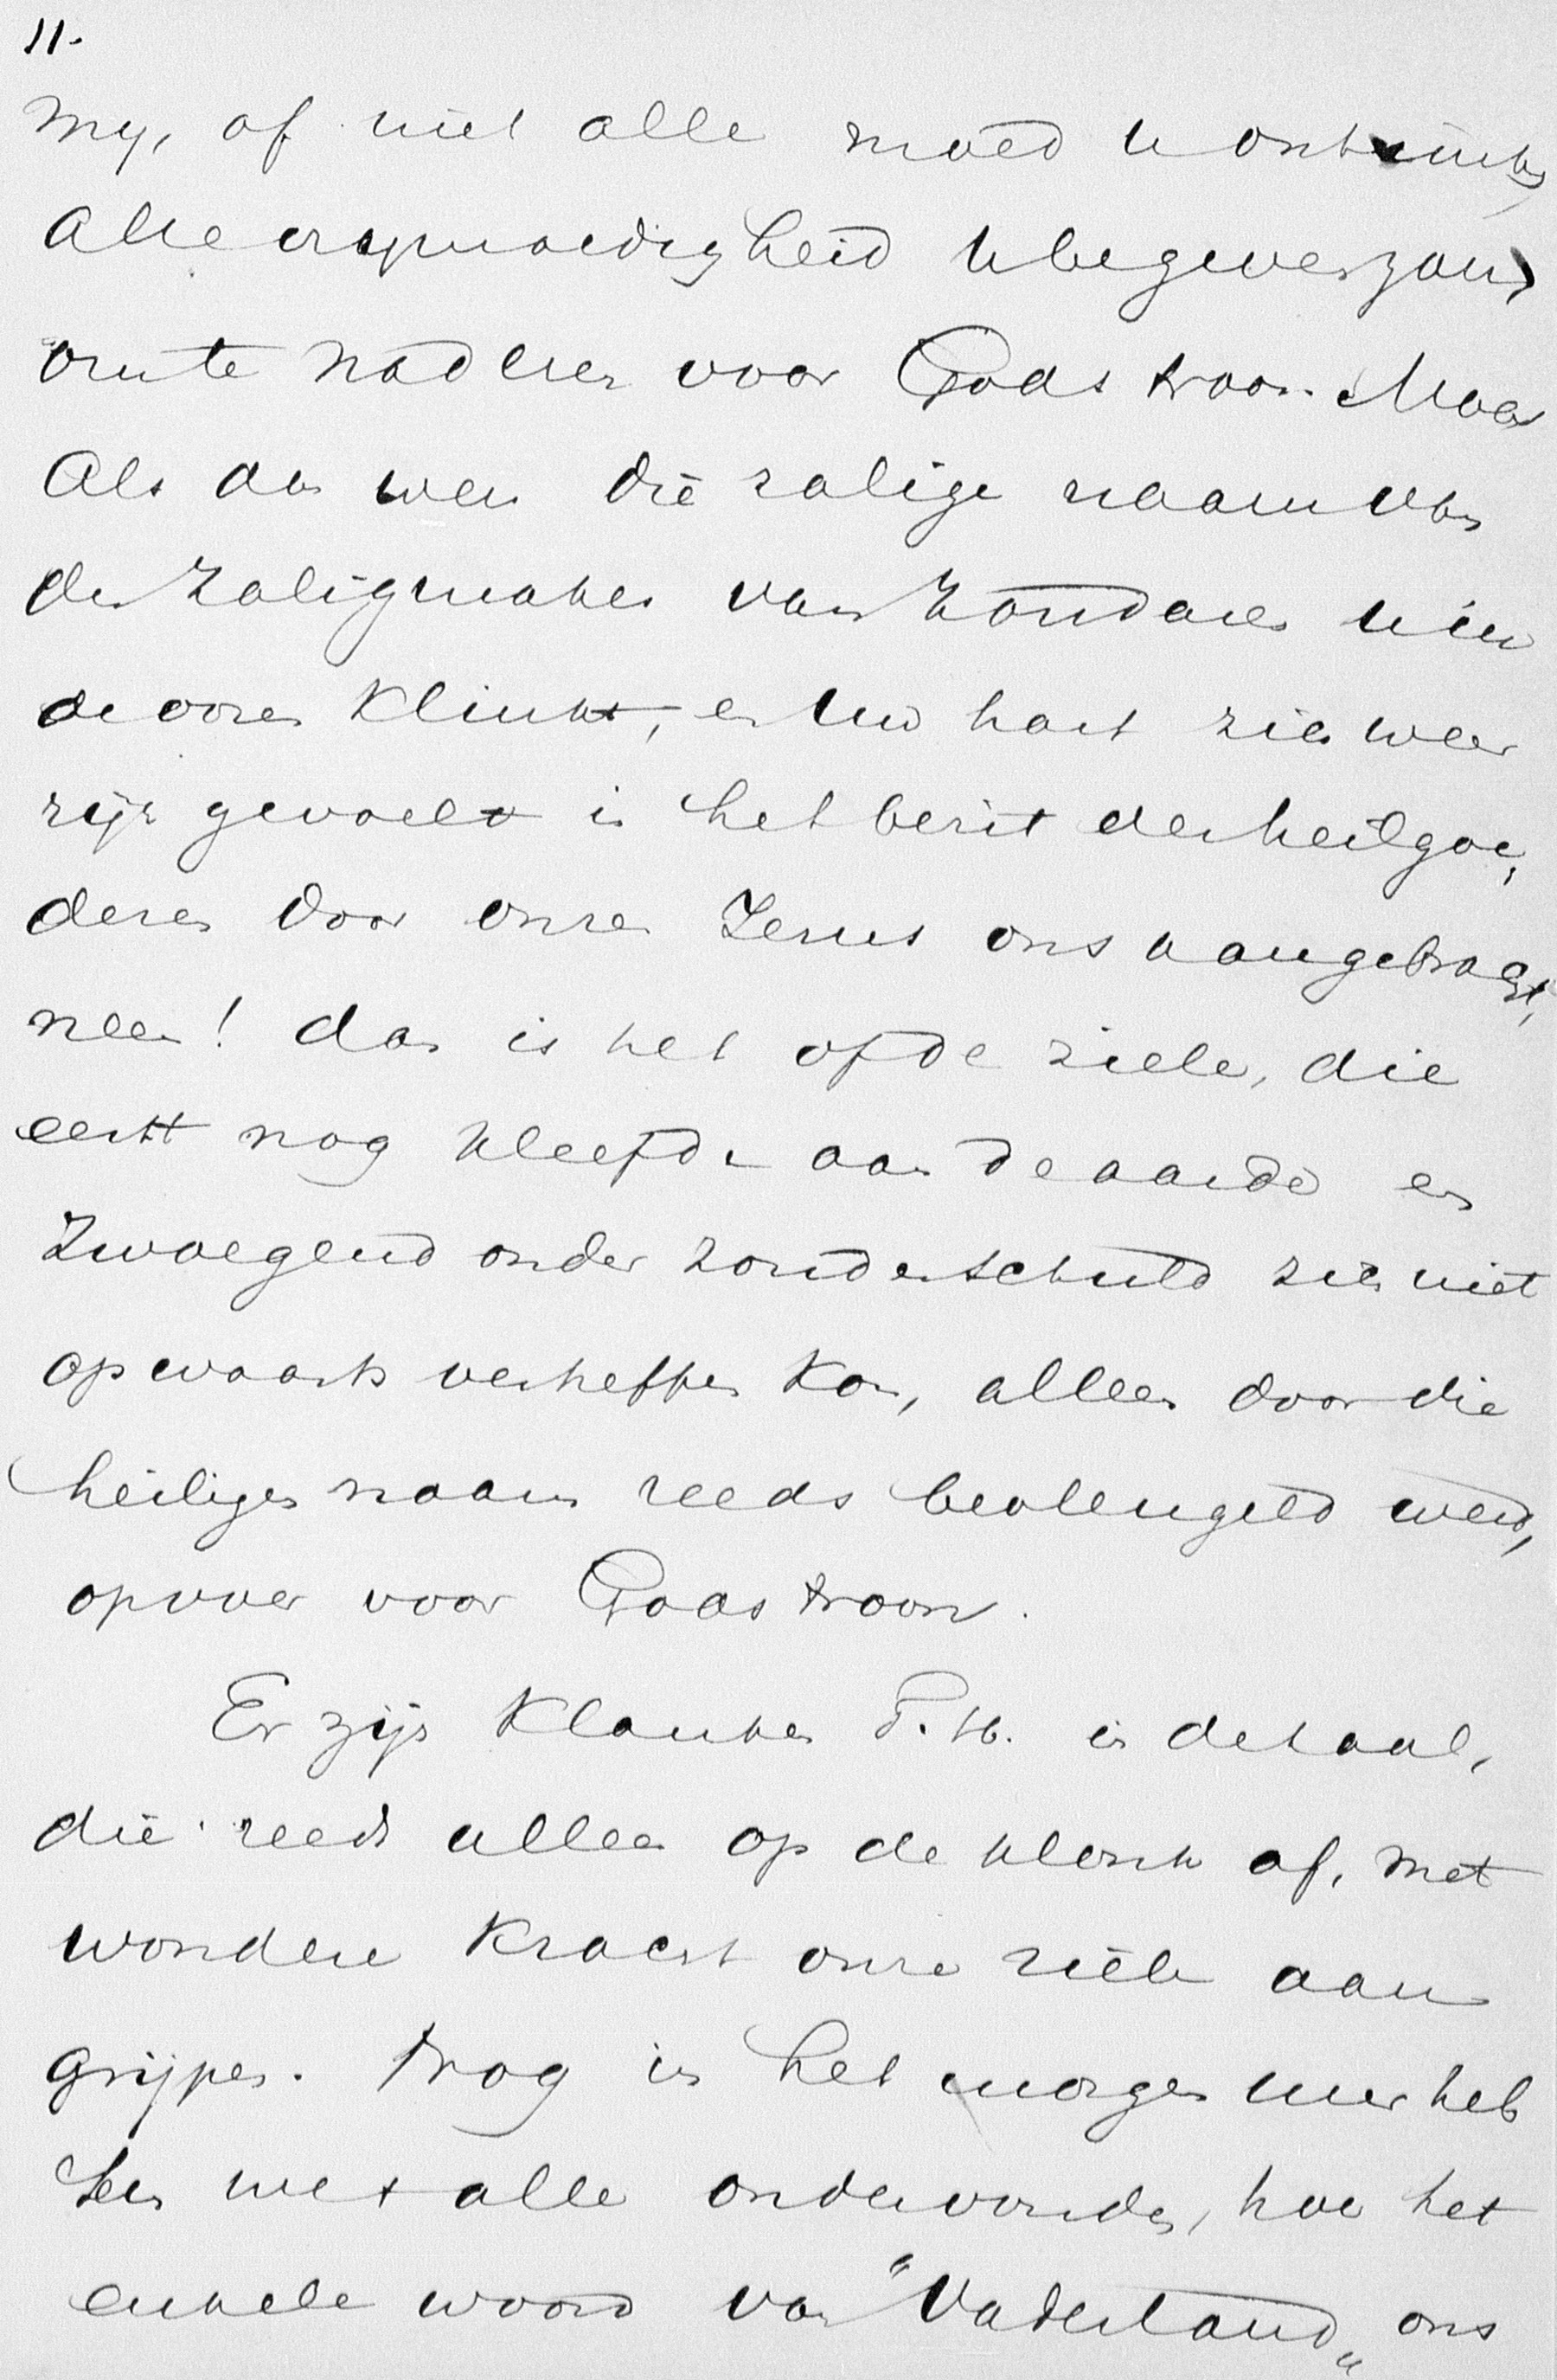 11.
my, of niet alle moed u ontzinken
alle vrijmoedigheid u begeven zou,
om te naderen voor Gods troon. Maar
Als dan weer die zalige naam van
den Zaligmaker van Zondaren u in
de ooren klinkt, en Uw hart zich weer
rijk gevoelt in het bezit der heilgoe„
deren door onzen Jezus ons aangebragt,
neen! dan is het of de ziele, die
eerst nog kleefde aan de aarde en
Zwoegend onder zondenschuld zich niet
opwaarts verheffen kon, alleen door die
heiligen naam reeds bevleugeld werd,
opvoer voor Gods troon.
Er zijn klanken G. H. in de taal,
die reeds alleen op de klank af, met
wondere kracht onze ziele aan
grijpen. Nog in het morgen uur heb
ben we t alle ondervonden, hoe het
enkele woord van "Vaderland„ ons